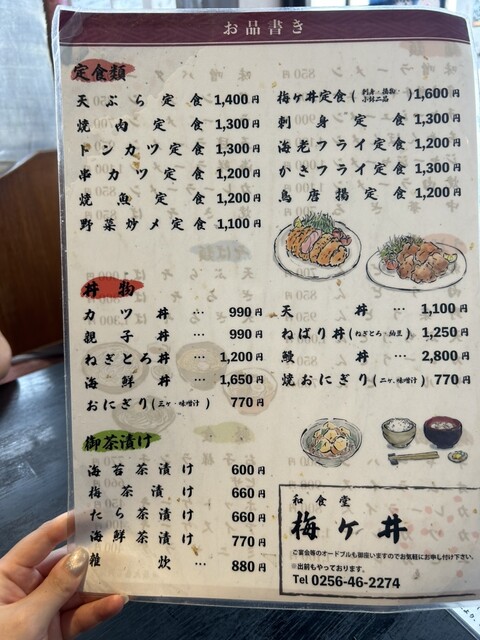 お品書き
定食類
天ぷら定食 1,400円
焼肉定食 1,300円
トンカツ定食 1,300円
串カツ定食 1,200円
焼魚定食 1,200円
野菜炒メ定食 1,100円
梅ヶ井定食(刺身・揚物・小鉢二品) 1,600円
刺身定食 1,300円
海老フライ定食 1,200円
かきフライ定食 1,300円
鳥唐揚定食 1,200円
丼物
カツ丼 … 990円
親子丼 … 990円
ねぎとろ丼 … 1,200円
海鮮丼 … 1,650円
おにぎり(三ヶ・味噌汁) 770円
天丼 … 1,100円
ねばり丼(ねぎとろ・納豆) 1,250円
鰻丼 … 2,800円
焼おにぎり(二ヶ、味噌汁) 770円
御茶漬け
海苔茶漬け 600円
梅茶漬け 660円
たら茶漬け 660円
海鮮茶漬け 770円
雑炊 … 880円
和食堂
梅ヶ井
ご宴会等のオードブルも御座いますのでお気軽にお申し付け下さい。
※出前もやっております。
Tel 0256-46-2274